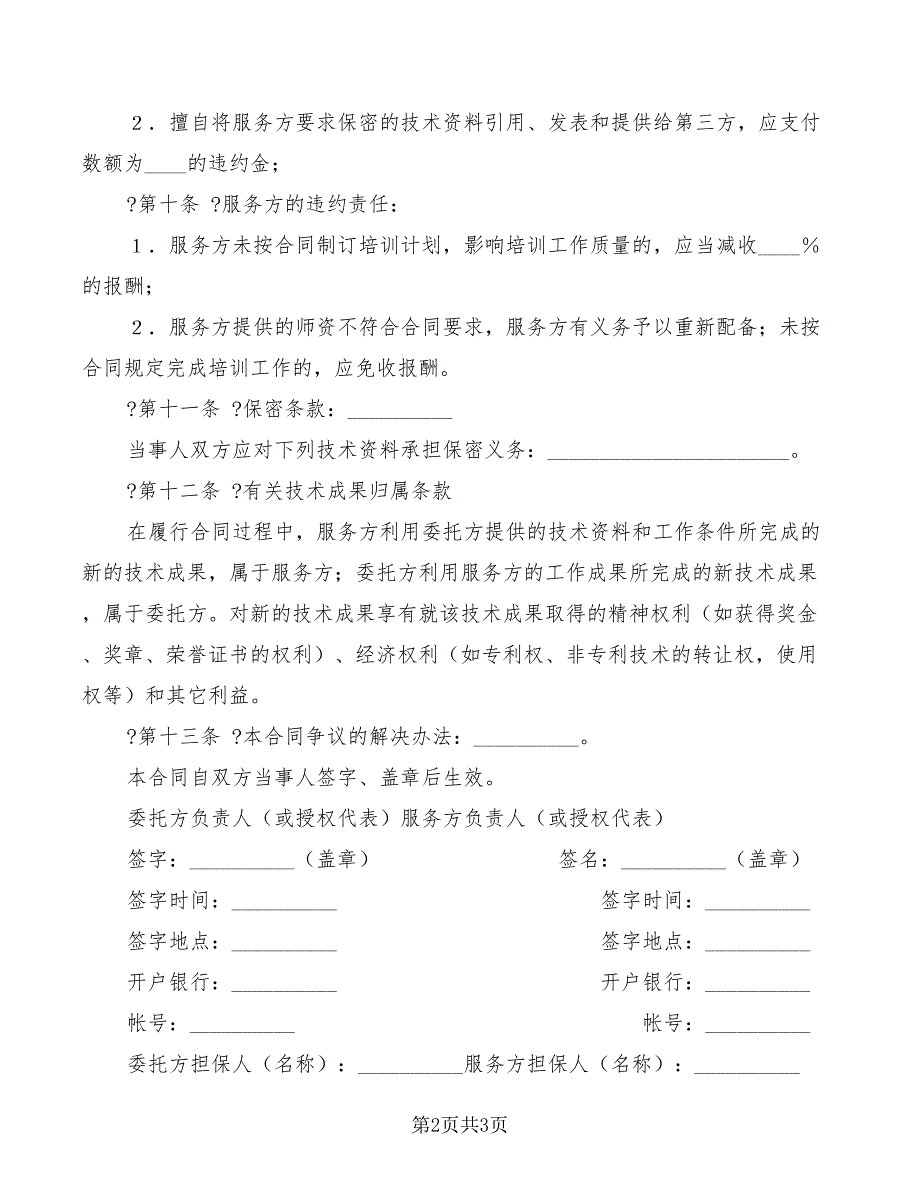 ２．擅自将服务方要求保密的技术资料引用、发表和提供给第三方，应支付
数额为____的违约金；
?第十条 ?服务方的违约责任：
１．服务方未按合同制订培训计划，影响培训工作质量的，应当减收____％
的报酬；
２．服务方提供的师资不符合合同要求，服务方有义务予以重新配备；未按
合同规定完成培训工作的，应免收报酬。
?第十一条 ?保密条款：__________
当事人双方应对下列技术资料承担保密义务：_______________________。
?第十二条 ?有关技术成果归属条款
在履行合同过程中，服务方利用委托方提供的技术资料和工作条件所完成的
新的技术成果，属于服务方；委托方利用服务方的工作成果所完成的新技术成果
，属于委托方。对新的技术成果享有就该技术成果取得的精神权利（如获得奖金
、奖章、荣誉证书的权利）、经济权利（如专利权、非专利技术的转让权，使用
权等）和其它利益。
?第十三条 ?本合同争议的解决办法：__________。
本合同自双方当事人签字、盖章后生效。
委托方负责人（或授权代表）服务方负责人（或授权代表）
签字：__________（盖章） 签名：__________（盖章）
签字时间：__________ 签字时间：__________
签字地点：__________ 签字地点：__________
开户银行：__________ 开户银行：__________
帐号：__________ 帐号：__________
委托方担保人（名称）：__________服务方担保人（名称）：__________
第2页共3页